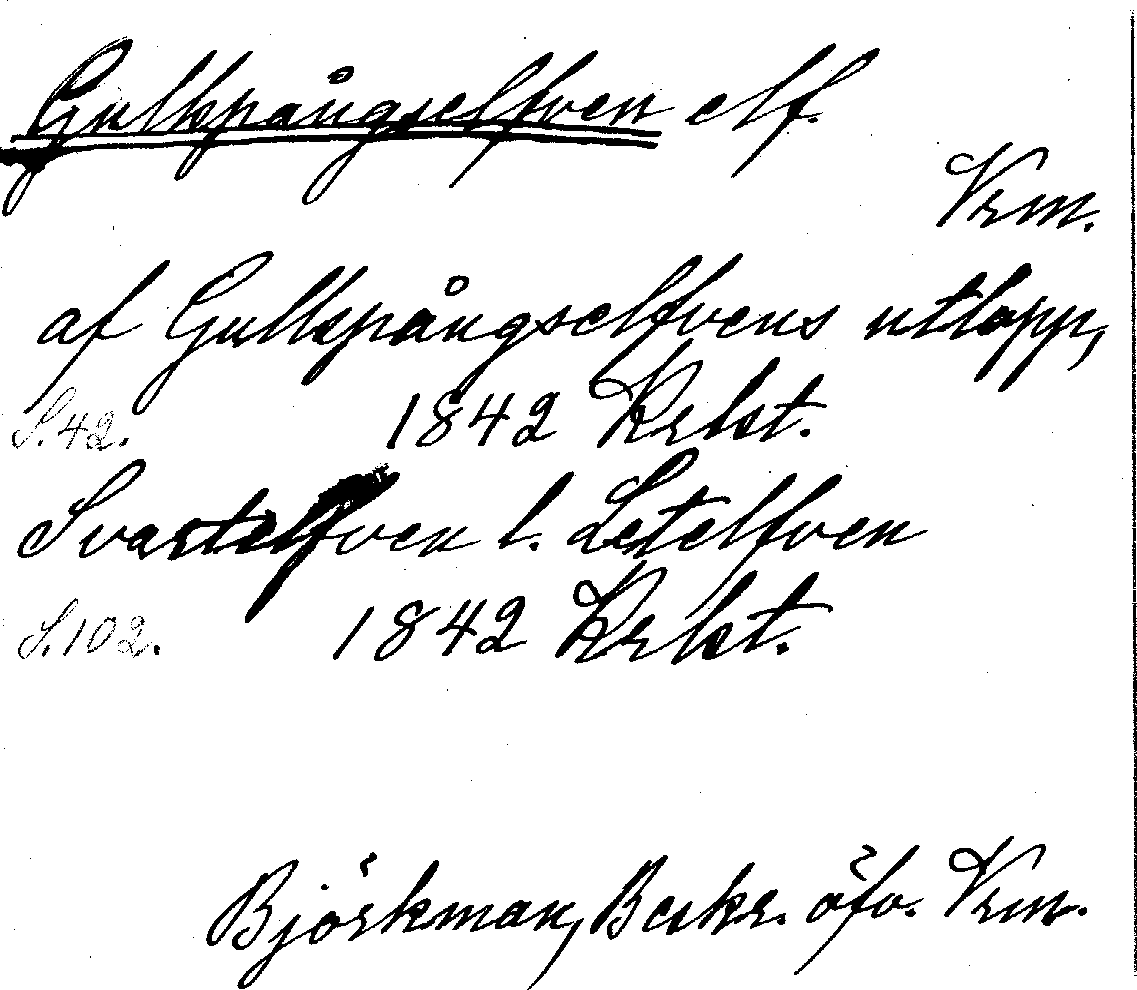 Gullspångselfven elf.
Vrm.
af Gullspångselfvens utlopp,
S.42. 1842 Krlst.
Svartelfven l. Letelfven
S.102. 1842 Krlst.
Björkman, Beskr. öfv. Vrm.